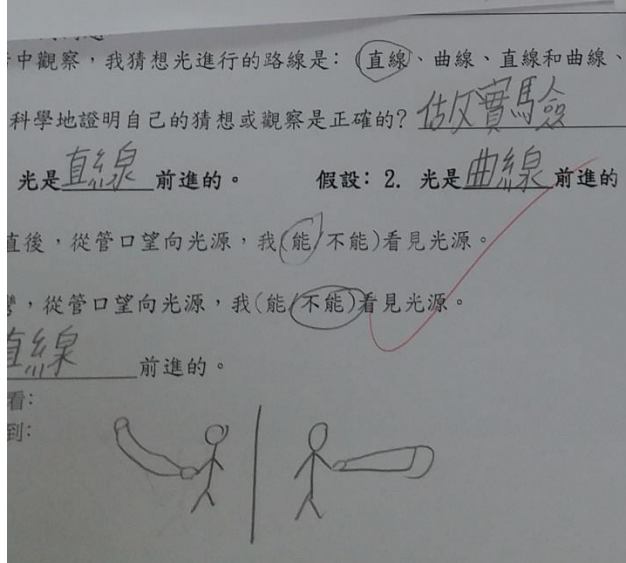 中觀察，我猜想光進行的路線是：(直線、曲線、直線和曲線、
科學地證明自己的猜想或觀察是正確的？估友實驗
光是直線前進的。 假設：2. 光是曲線前進的
直後，從管口望向光源，我(能/不能)看見光源。
，從管口望向光源，我(能/不能)看見光源。
直線前進的。
看：
到：